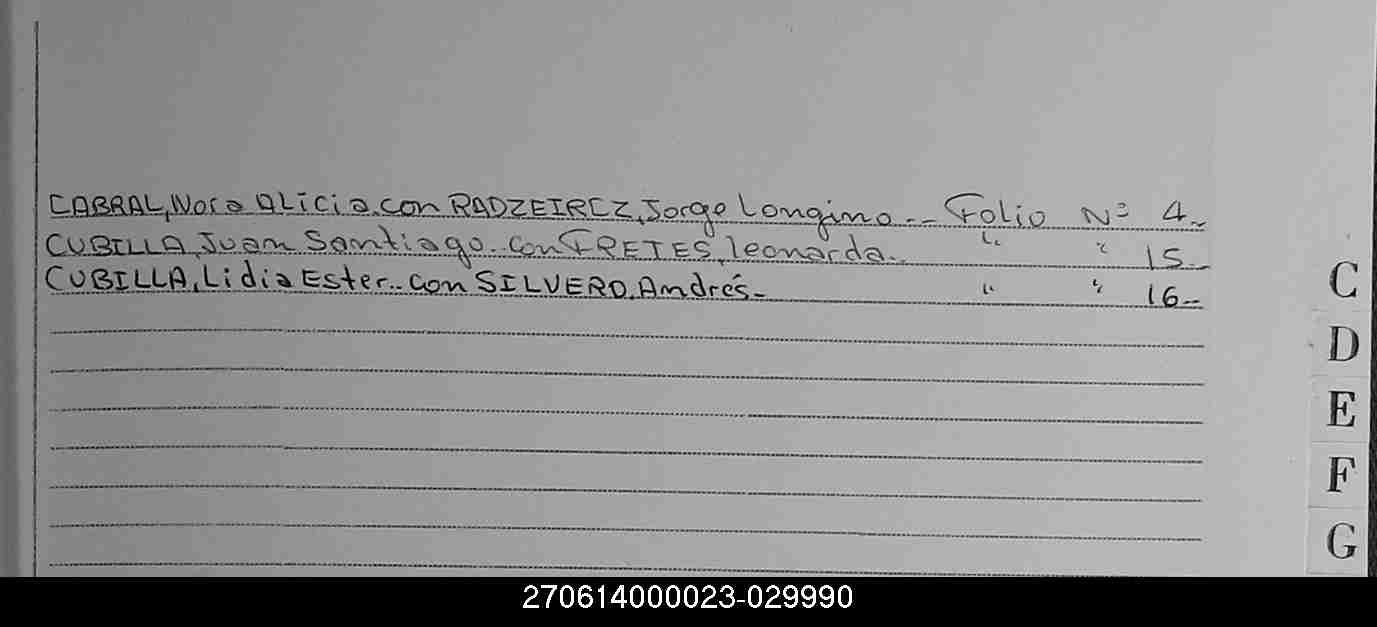 CABRAL, Nora Alicia con RADZEIRCZ, Jorge Longino.-- Folio Nº 4.-
CUBILLA, Juan Santiago.. con FRETES, Leonarda.. " " 15.-
CUBILLA, Lidia Ester.. con SILVERO, Andrés.- " " 16.-
C
D
E
F
G
270614000023-029990